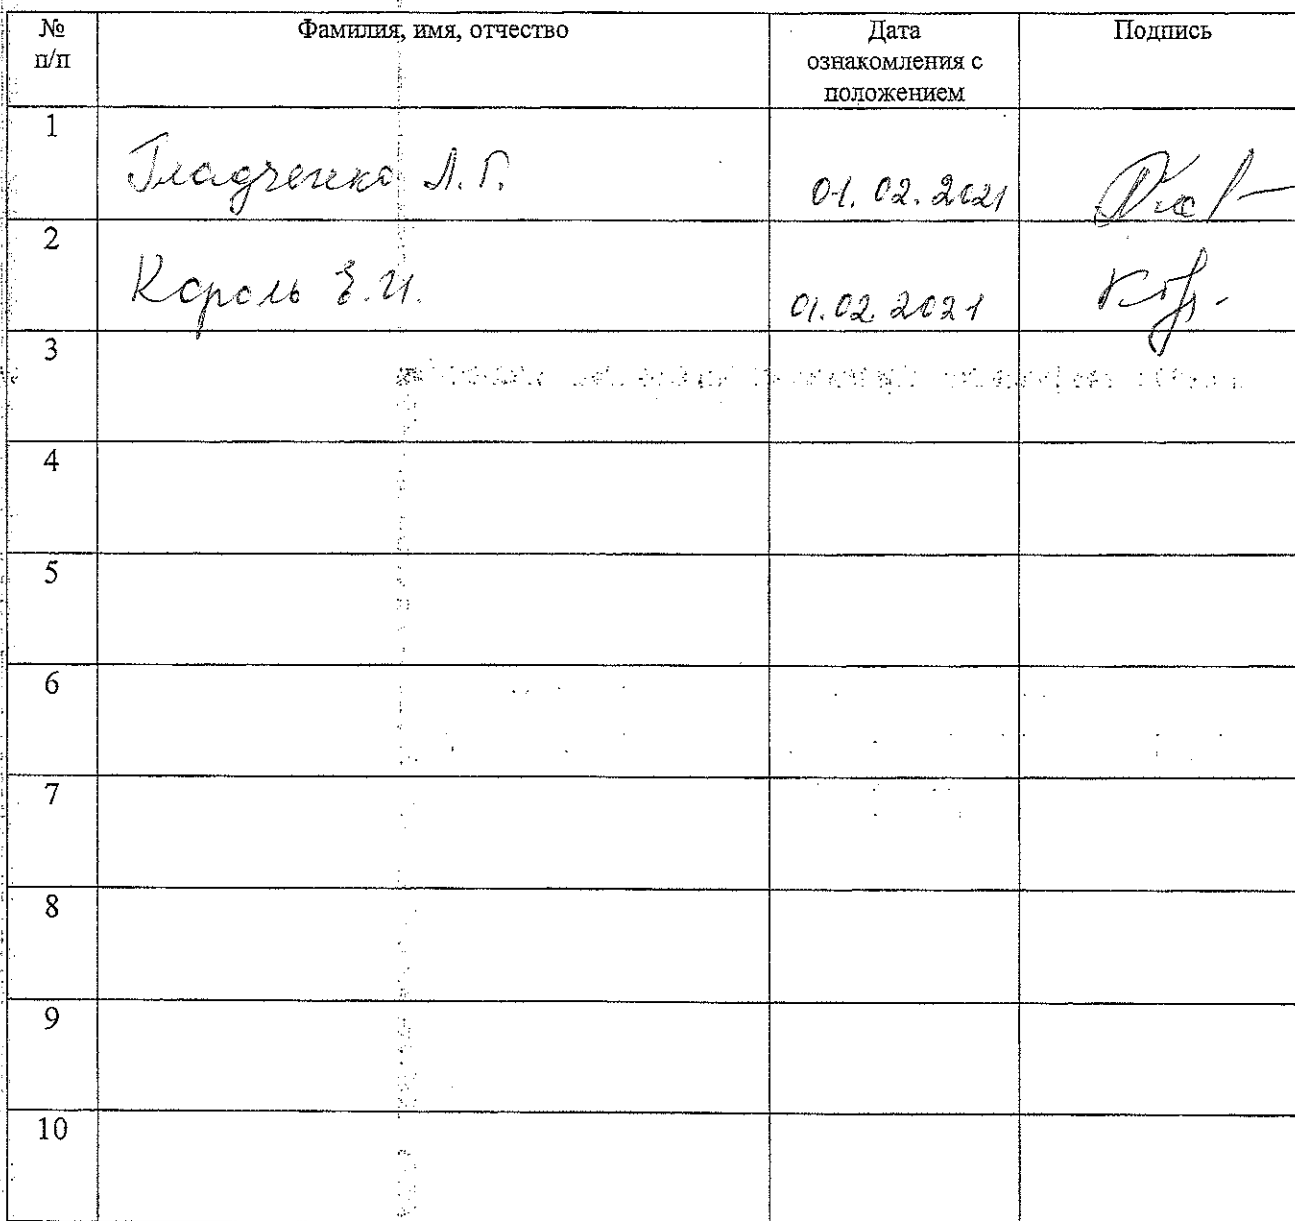 № п/п Фамилия, имя, отчество Дата ознакомления с положением Подпись
1 Гладченко Л.Г. 01.02.2021
2 Король Е.И. 01.02.2021
3
4
5
6
7
8
9
10